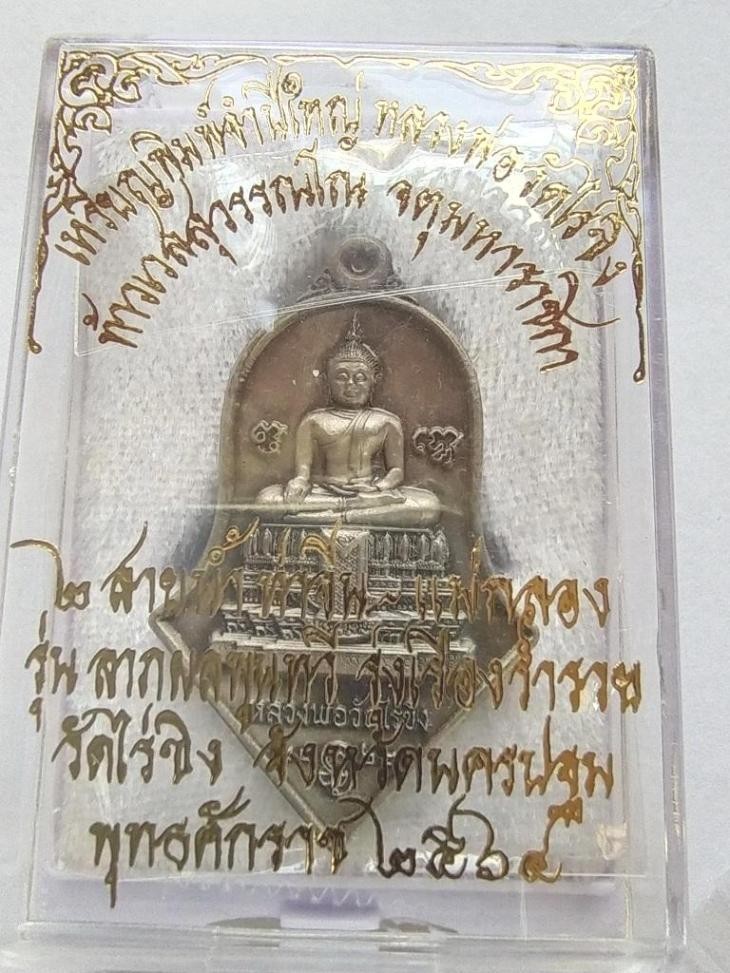 เหรียญพิมพ์จำปีใหญ่ หลวงพ่อวัดไร่ขิง
ท้าวเวสสุวรรณโณ จตุมหาราชิกา
๒ สายน้ำ ท่าจีน-แม่กลอง
รุ่น ลาภผลพูนทวี รุ่งเรืองร่ำรวย
หลวงพ่อวัดไร่ขิง
วัดไร่ขิง จังหวัดนครปฐม
พุทธศักราช ๒๕๖๔